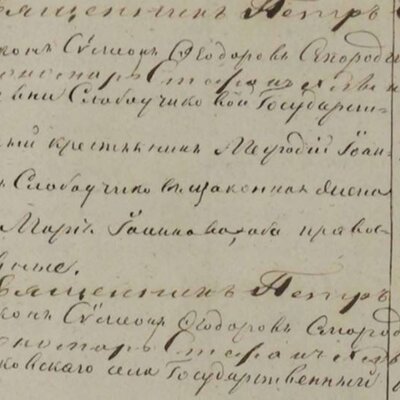 священникъ Петръ
конъ Сѵмеонъ Ѳеодоровъ Смород
ономарь Стефан
вни Слободчиковой Государст-
ный крестьянинъ Меѳодій Іоан-
ъ Слободчиковъ, законная жена
Марія Іоаннова, оба право-
вные.
священникъ Петръ
конъ Сѵмеонъ Ѳеодоровъ Смород
ономарь Стефан
ковскаго села Государственный